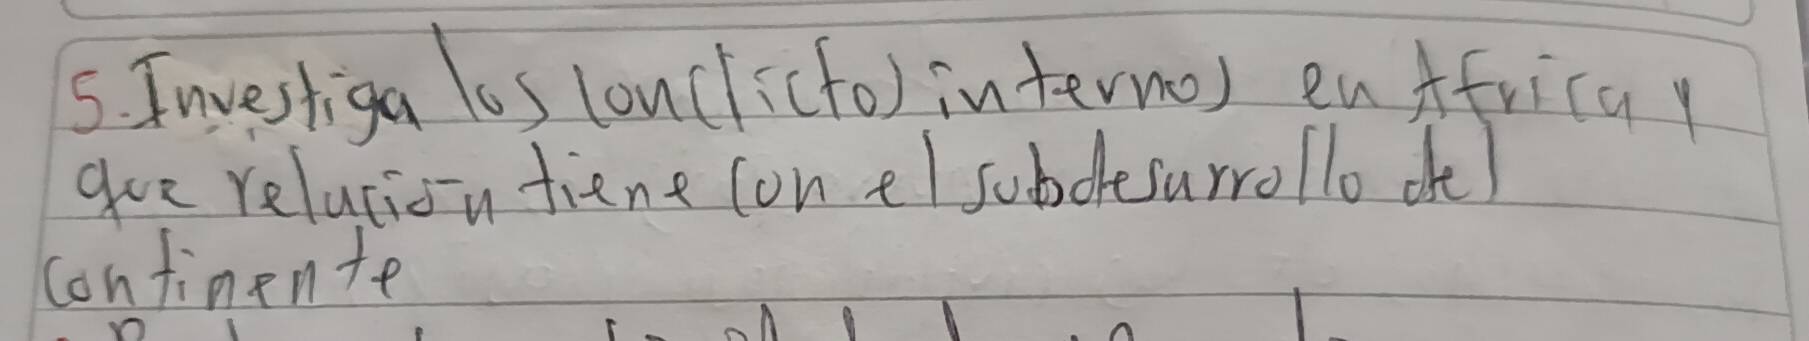 5. Investiga los conflictos internos en Africa y
que relación tiene con el subdesarrollo del
continente